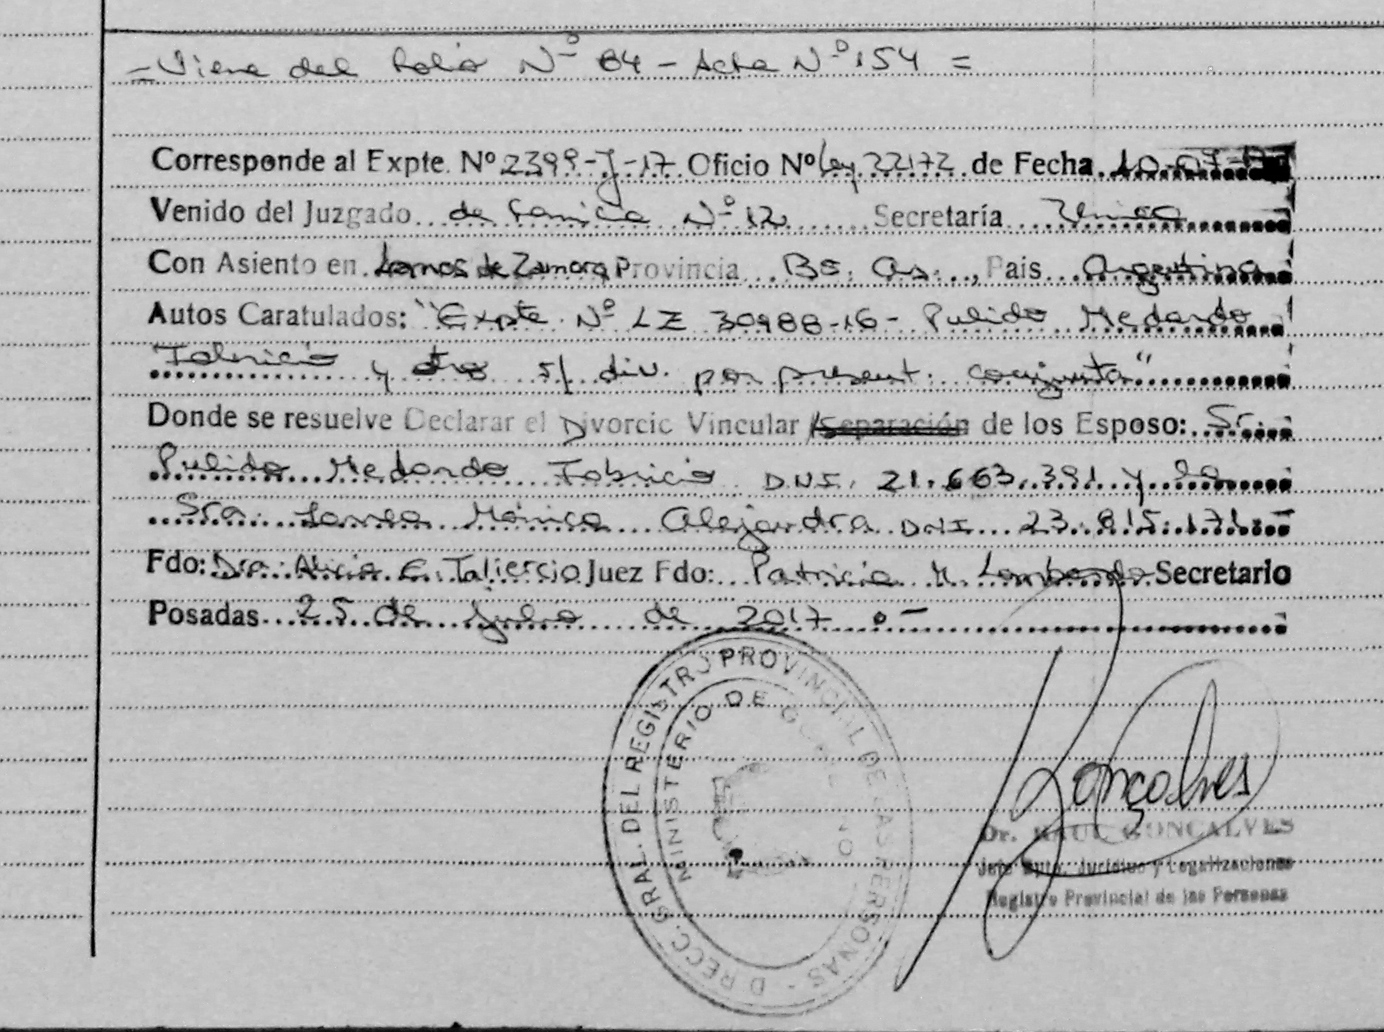 - Viene del Folio Nº 84 - Acta Nº 154 =
Corresponde al Expte. Nº 2399-J-17 Oficio Nº Ley 22172 de Fecha 10-07-
Venido del Juzgado de Familia Nº 12 Secretaría Única
Con Asiento en Lomas de Zamora Provincia Bs. As., País Argentina
Autos Caratulados: "Expte. Nº LZ 30988-16 - Pulido Medardo
Fabricio y otro s/ div. por present. conjunta"
Donde se resuelve Declarar el Divorcio Vincular /Separación de los Esposo: Sr.
Pulido Medardo Fabricio DNI. 21.663.391 y la
Sra. Mónica Alejandra DNI 23.815.171.-
Fdo: Dra. Alicia E. Taliercio Juez Fdo: Patricia M. Lombardo Secretario
Posadas 25 de Julio de 2017.-
DIRECC. GRAL. DEL REGISTRO PROVINCIAL DE LAS PERSONAS -
MINISTERIO DE GOBIERNO
Gonçalves
Dr. RAUL GONCALVES
Jefe Dpto. Jurídico y Legalizaciones
Registro Provincial de las Personas